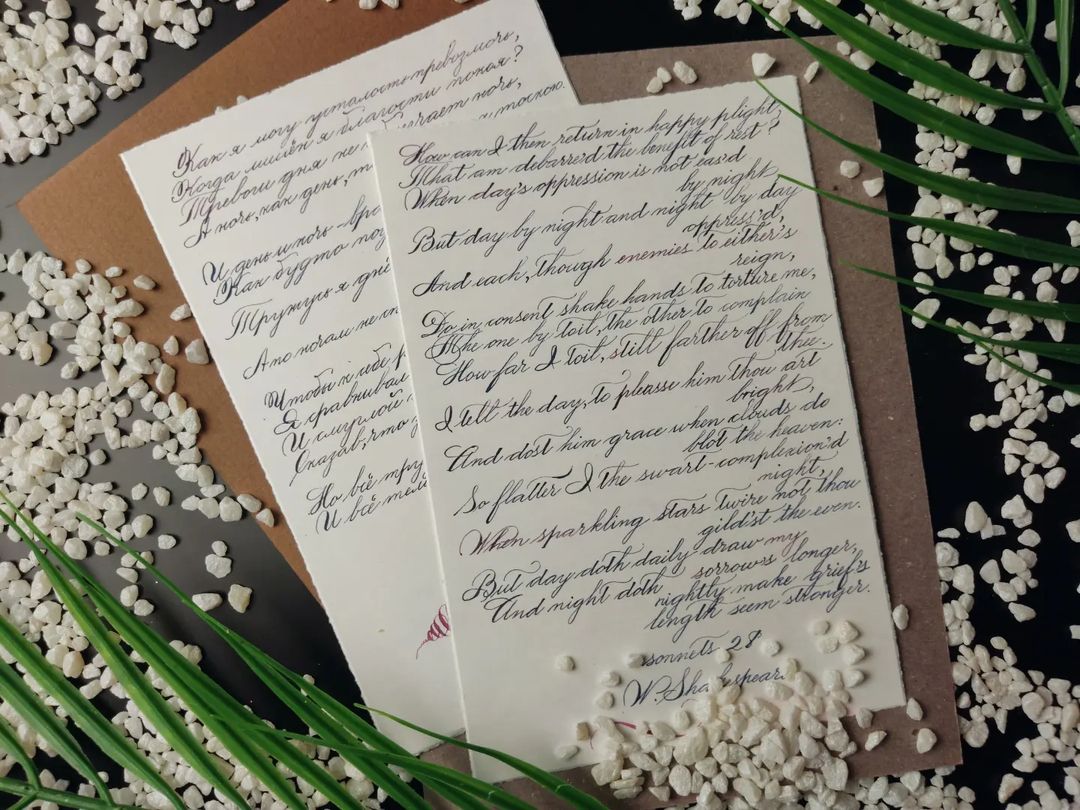 Как я могу усталость превозмочь,
Когда лишён я благости покоя?
Тревоги дня не чает ночь,
А ночь, как день, т тоскою.
И день и ночь - вра
Как будто под
Тружусь я днё
А по ночам не сп
Чтобы к себе р
Я сравнивал
И смуглой
Сказав, что з
Но всё тру
И всё тем
How can I then return in happy plight,
That am debarre'd the benefit of rest?
When day's oppression is not eas'd
by night,
But day by night and night by day
oppress'd,
And each, though enemies to either's
reign,
Do in consent shake hands to torture me,
The one by toil, the other to complain
How far I toil, still farther off from
thee.
I tell the day, to pleasse him thou art
bright,
And dost him grace when clouds do
blot the heaven:
So flatter I the swart-complexion'd
night,
When sparkling stars twire not thou
gild'st the even.
But day doth daily draw my
sorrows longer,
And night doth nightly make grief's
length seem stronger.
sonnets 28
W. Sha espear.